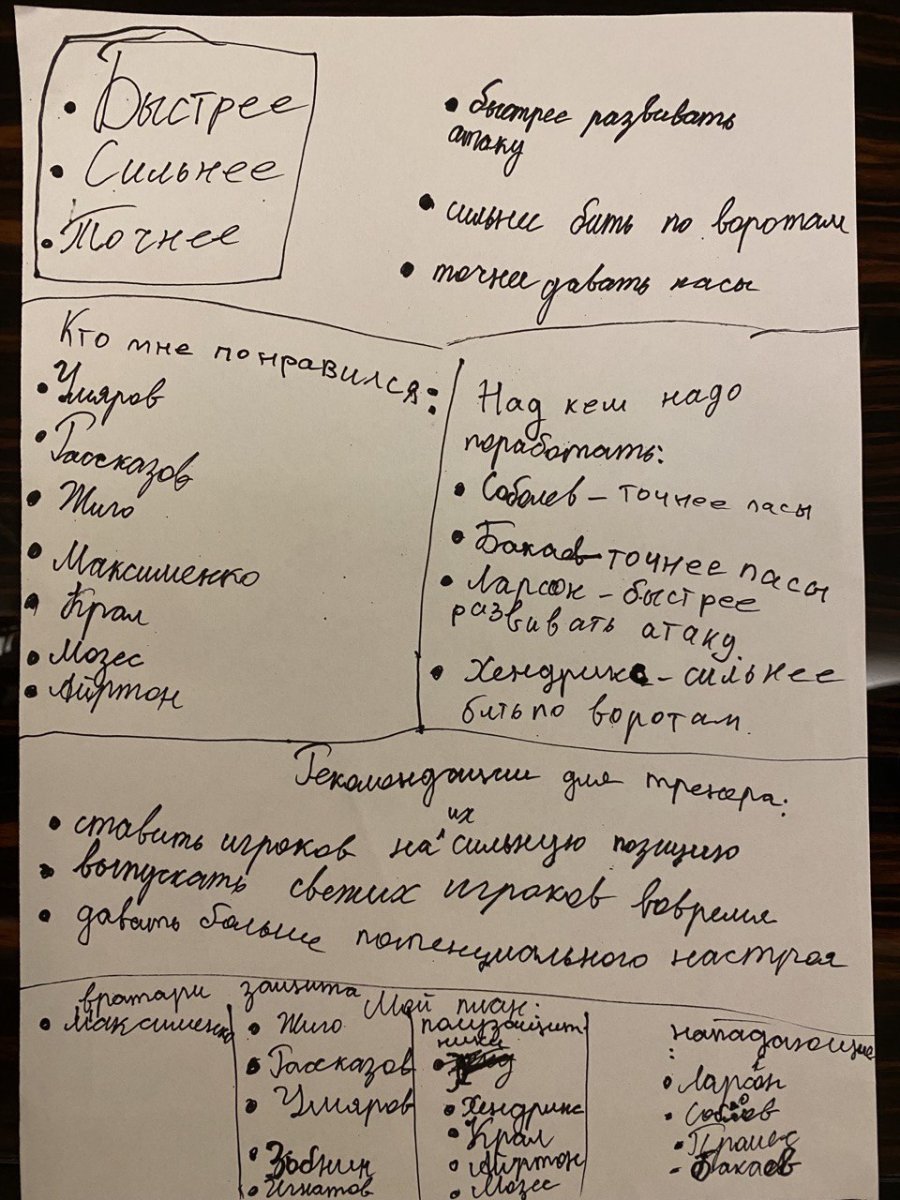 • Быстрее
• Сильнее
• Точнее
• быстрее развивать
атаку
• сильнее бить по воротам
• точнее давать пасы
Кто мне понравился:
• Умяров
• Рассказов
• Жиго
• Максименко
• Крал
• Мозес
• Айртон
Над кем надо
поработать:
• Соболев – точнее пасы
• Бакаев точнее пасы
• Ларсон – быстрее
развивать атаку.
• Хендрикс – сильнее
бить по воротам.
Рекомондации для тренера:
• ставить игроков на их сильную позицию
• выпускать свежих игроков вовремя
• давать больше потенциального настроя
Мой план:
вратари
• Максименко
защита
• Жиго
• Рассказов
• Умяров
• Зобнин
• Игнатов
полузащит
ники
• Хендрикс
• Крал
• Айртон
• Мозес
нападающие
:
• Ларсон
• Соболев
• Промес
- Бакаев